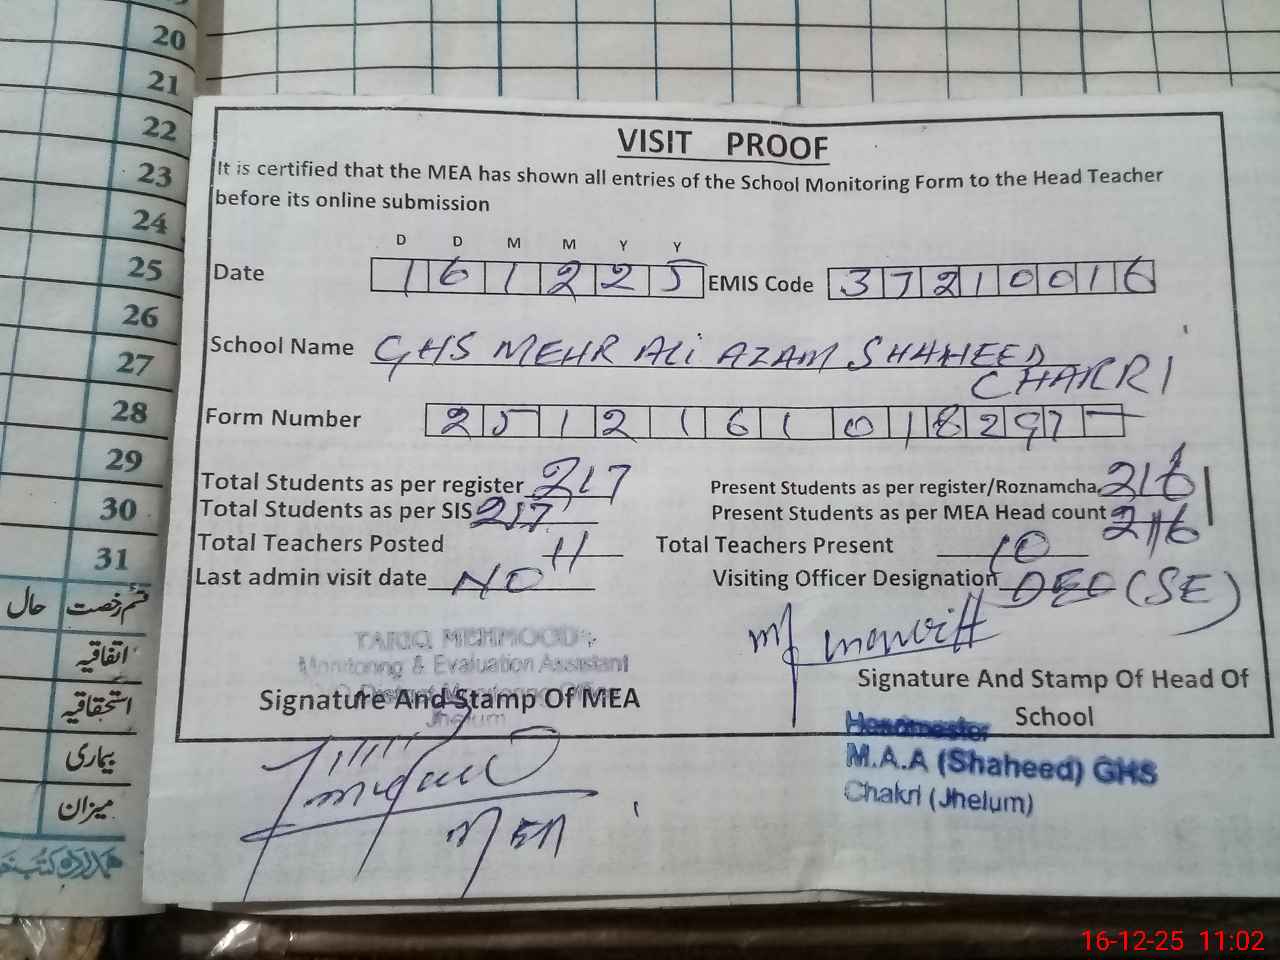 20
21
22
23
24
25
26
27
28
29
30
31
قسم رخصت حال
اتفاقیہ
استحقاقیہ
بیماری
میزان
VISIT PROOF
It is certified that the MEA has shown all entries of the School Monitoring Form to the Head Teacher
before its online submission
D D M M Y Y
Date 1 6 1 2 2 5 EMIS Code 3 7 2 1 0 0 1 6
School Name GHS MEHR ALi AZAM SHAHEED
CHAKRI
Form Number 2 5 1 2 1 6 1 0 1 8 2 9 7 -
Total Students as per register 217 Present Students as per register/Roznamcha 216
Total Students as per SIS 217 Present Students as per MEA Head count 216
Total Teachers Posted 11 Total Teachers Present 10
Last admin visit date NO Visiting Officer Designation DEO (SE)
TARIQ MEHMOOD
Monitoring & Evaluation Assistant
Signature And Stamp Of MEA
Jhelum
MEA
Signature And Stamp Of Head Of
School
Headmaster
M.A.A (Shaheed) GHS
Chakri (Jhelum)
16-12-25 11:02